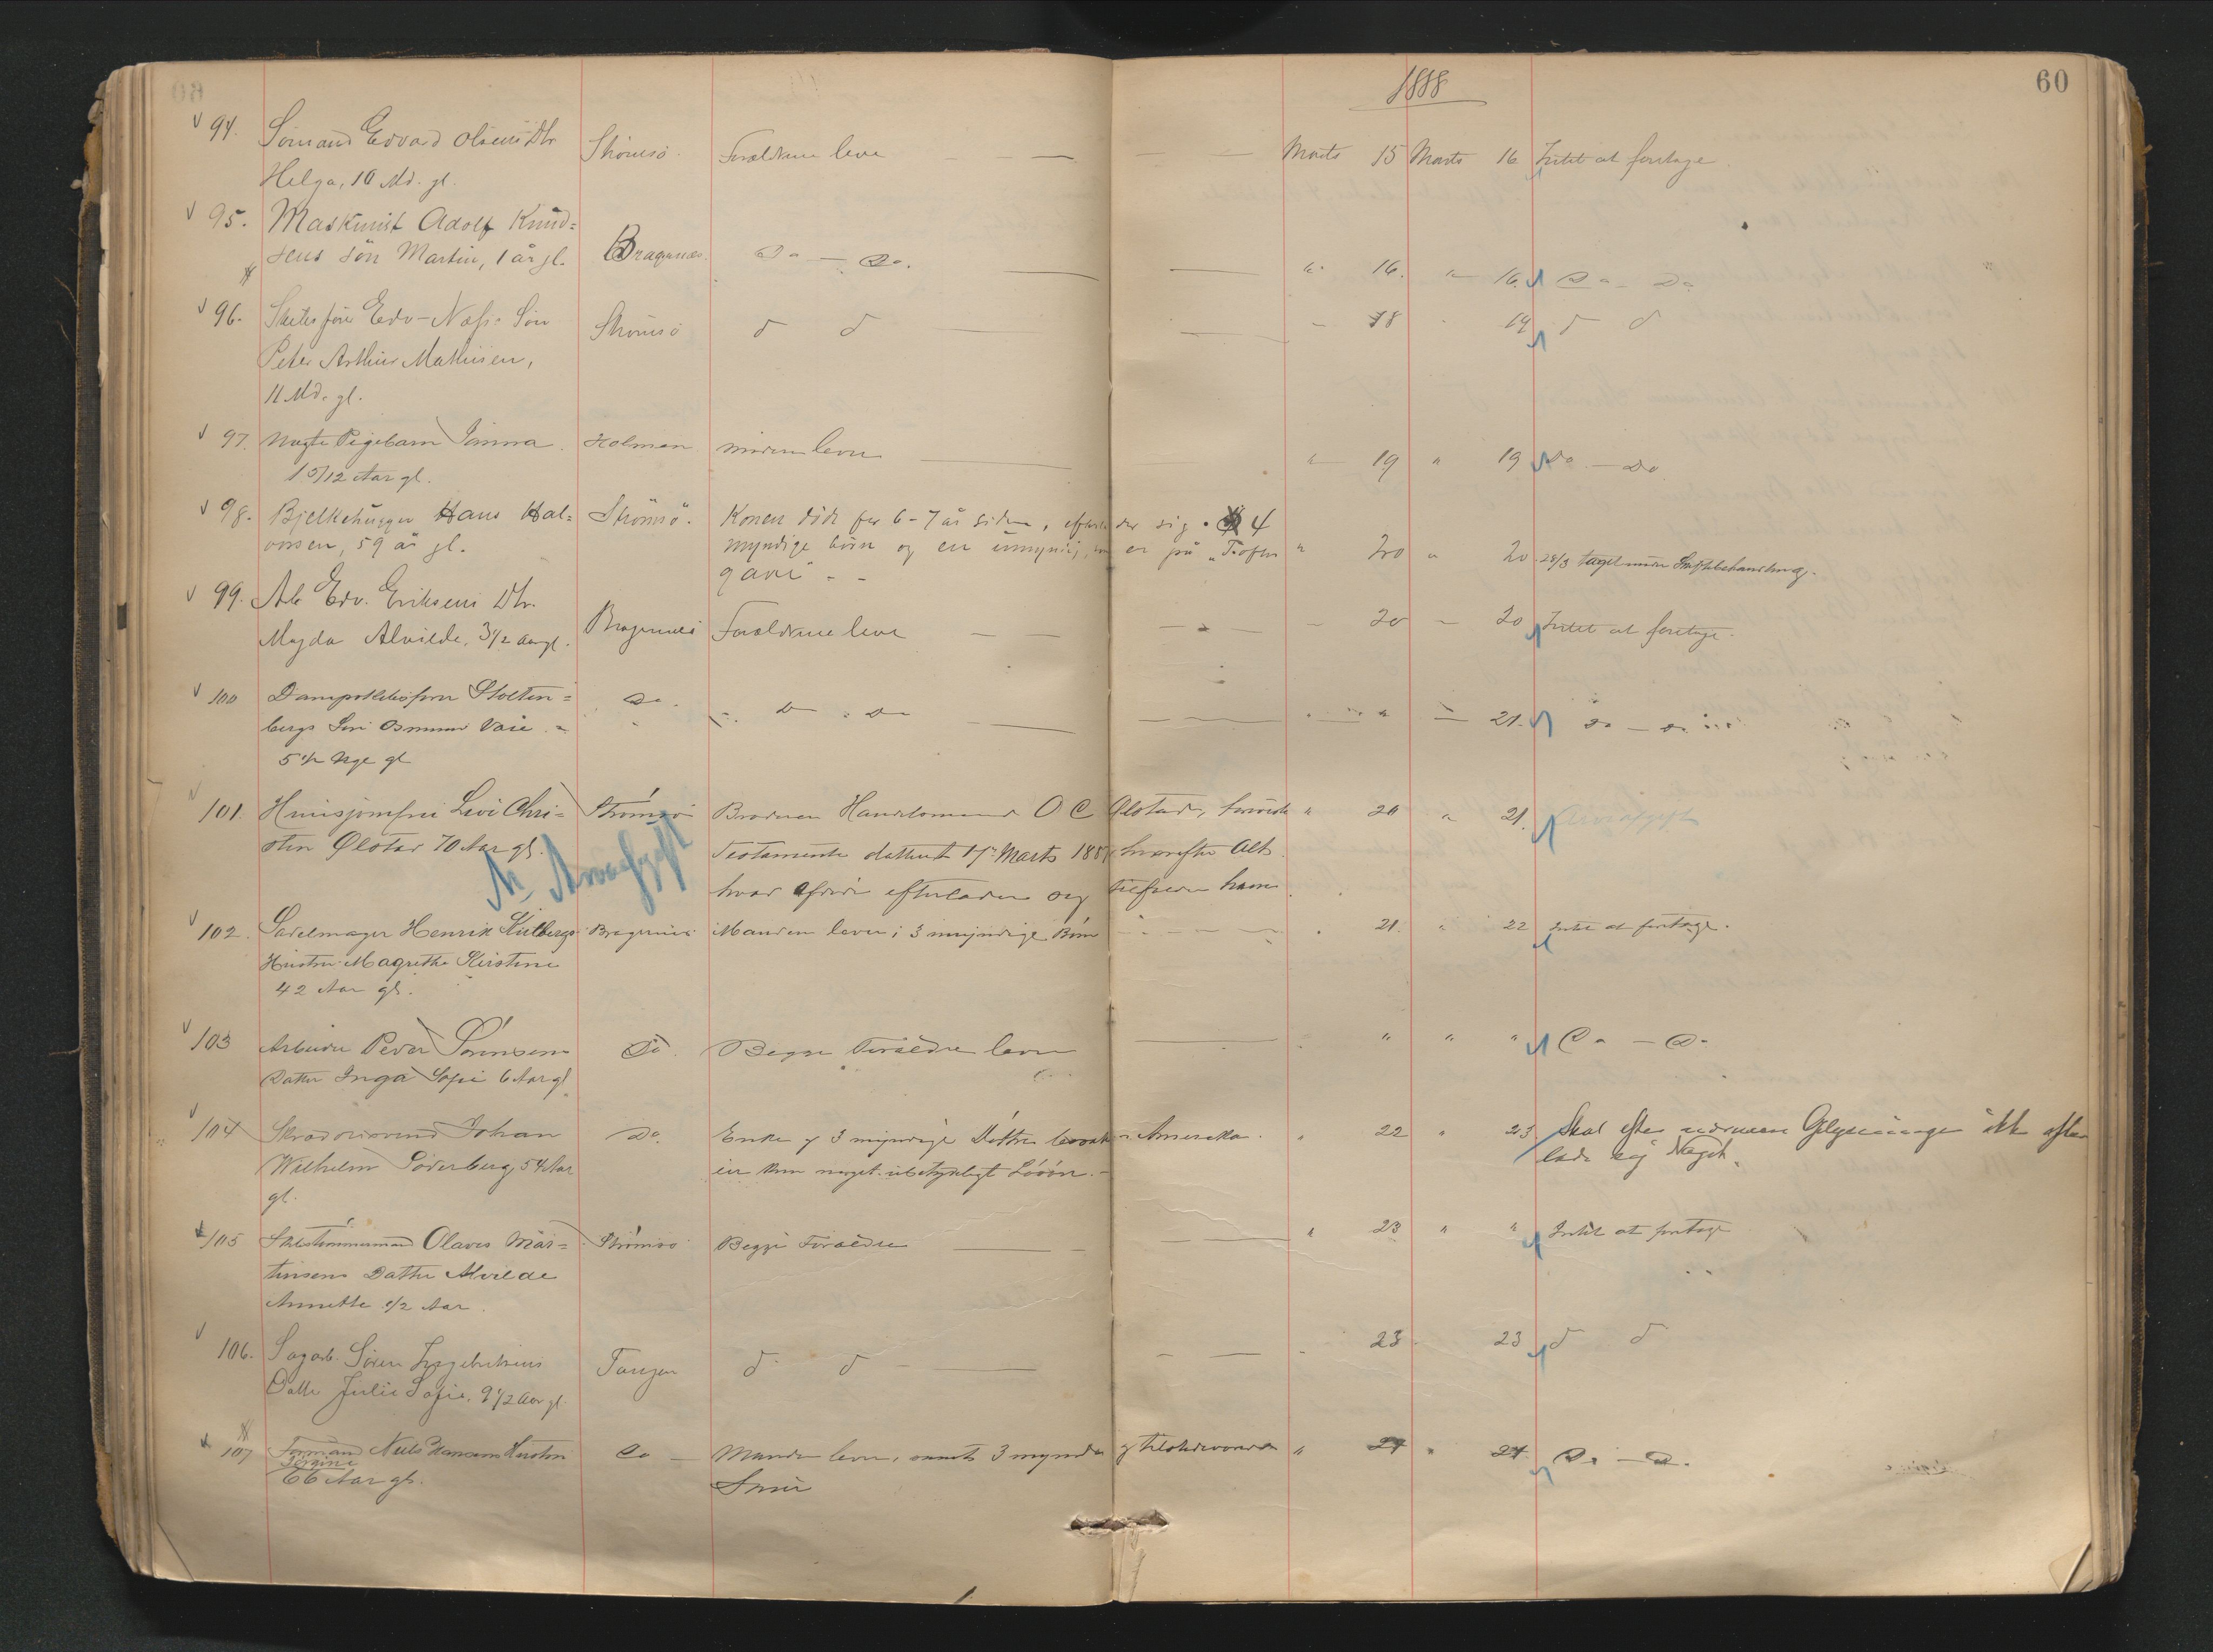 1888
60
94. Sömand Edvard Olsens Dtr Strömsö. Forældrene leve Marts 15 Marts 16 Intet at foretage.
Helga, 10 Md. gl.
95. Maskinist Adolf Knud=
sens sön Martin, 1 år gl. Bragernæs. Do — Do. " 16. " 16. Do — Do
96. Edv. Næss Sön Strömsö d d 18 19 d d
Peter Arthur Mathisen,
11 Md. gl.
97. Pigebarn Holmen leve " 19 " 19 Do — Do
1 5/12 Aar gl.
98. Bjelkehugger Hans Hal= Strömsö. Konen döde for 6-7 år siden, sig 4
vorsen, 59 år gl. myndige börn og en umyndig, er på "Trofter " 20 " 20 28/3 taget under Skiftebehandling.
gave"
99. Arb Edv. Eriksens Dtr. Bragernæs Forældrene leve 20 20 Intet at foretage.
Magda Alvilde, 3 1/2 Aar gl.
100 Dampskibsförer Stolten= Do. Do Do " " 21. Do — Do
bergs Sön Osmund
5 1/2 Uge gl
101. Huusjomfru Christ= Strömsö Broderen Handelsmand O C Olstad, " 20 " 21. Arveafgift
Olstad 70 Aar gl. Testamente dateret 17 Marts hvorefter Alt
Arveafgift
hvad Afdöde efterlader sig tilfalder ham
102. Sadelmager Henrik Bragernæs Manden lever; 3 umyndige Börn 21. " 22 Intet at foretage.
Hustru Magrethe Kirstine
42 Aar gl.
103 Arbeider Peder Sörensens Do. Begge Forældre leve " " " Do — Do
Datter Inga Sofie 6 Aar gl
104 Skrædersvend Johan Do. Enke og 3 myndige Döttre i Amerika. " 22 " 23 Skal efter nærmere Oplysninger ikke efter=
Wilhelm Söderberg, 54 Aar kun noget ubetydeligt Lösöre. lade sig Noget.
gl.
105 Skibstömmermand Olaves Mar= Strömsö Begge Forældre " 23 " " Intet at foretage
tinsens Datter Alvilde
Annette 1/2 Aar.
106. Sagarb. Sören Ingebretsens Tangen d d 23 23 d d
Datter Julie Sofie. 9 1/2 Aar gl.
107 Formand Niels Hansens Hustru Do Manden lever, samt 3 myndige " 24 " 24 Do — Do.
Jörgine
66 Aar gl. Sönner